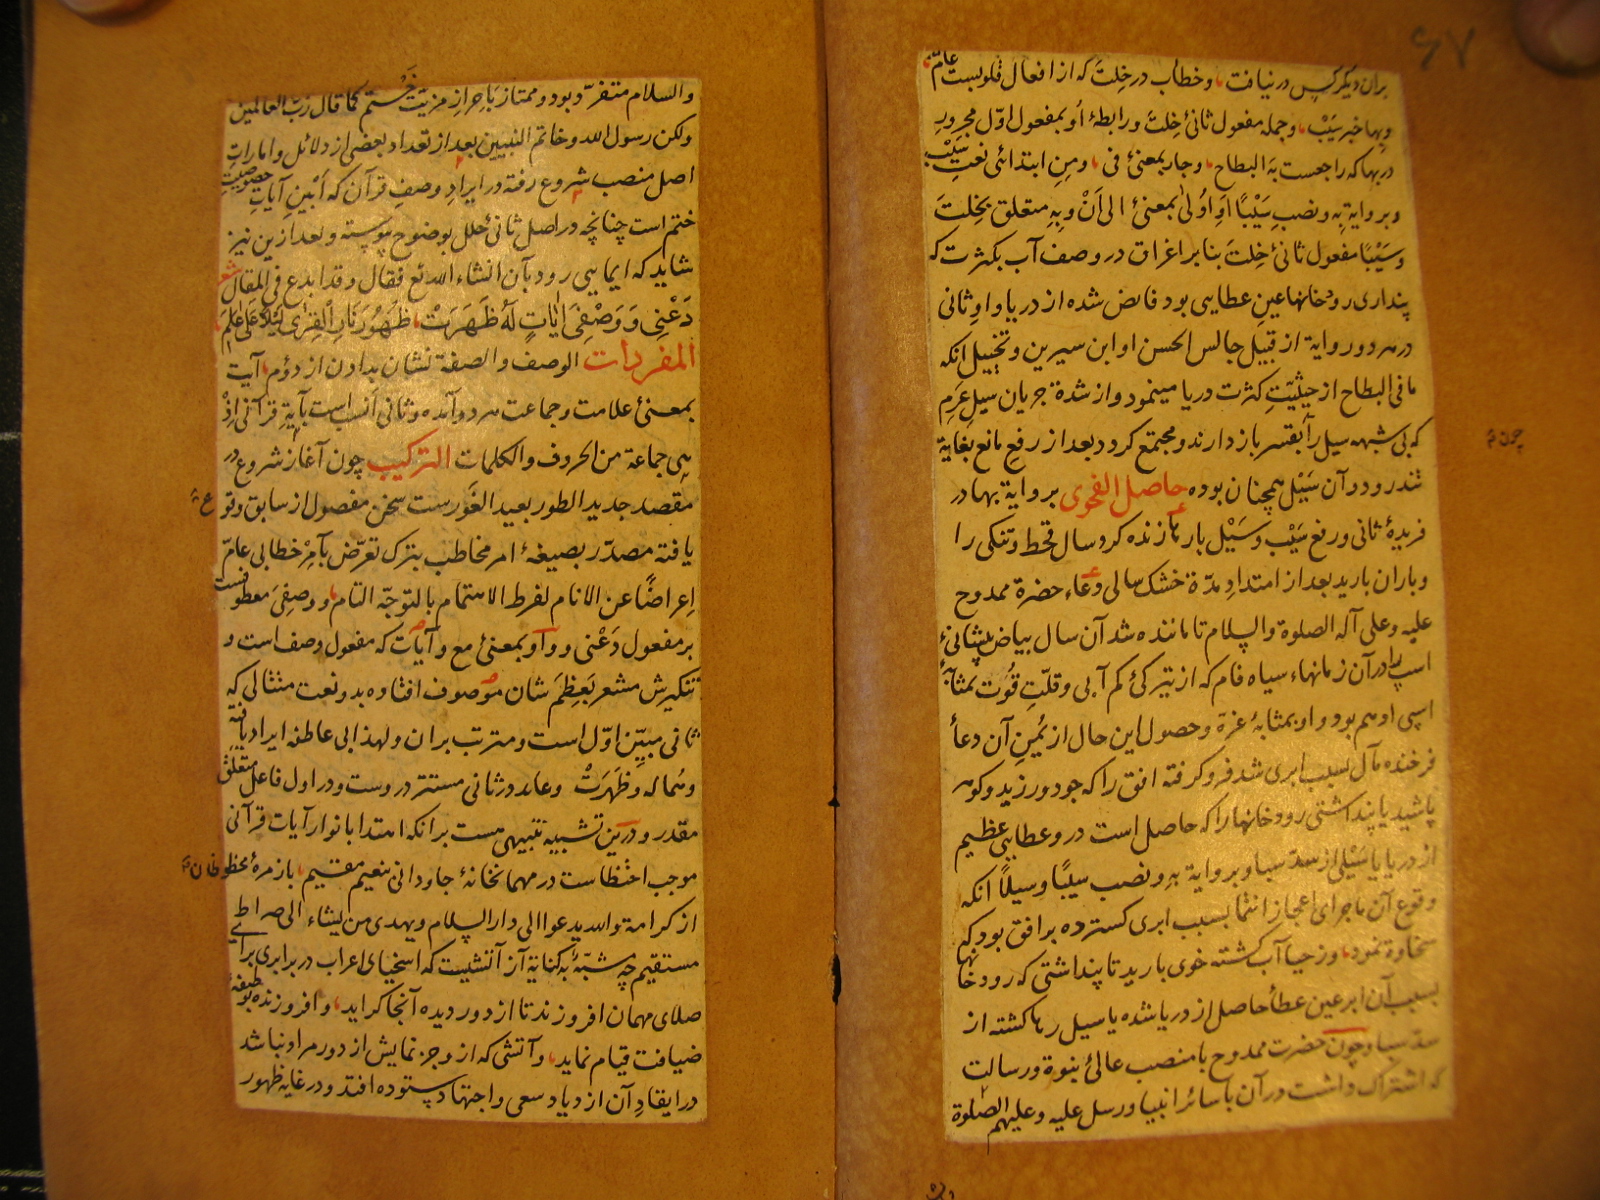 ۶۷
بران دیگر کس در نیافت، وخطاب در خِلتَ که از افعال قلوبست عامّ،
وبها خبر سَیْب، وجمله مفعول ثانیٔ خِلتَ ورابطهٔ اُو بمفعول اوّل مجرورِ
در بها که راجعست به البطاح، وجار بمعنیٔ فی، ومِنِ ابتدائی نعتِ سَیْب
وبروایة بِهِ ونصبِ سَیْبًا اَوْ اُولیٰ بمعنیٔ الی اَنْ وبِهِ متعلق بخِلتَ
وسَیْبًا مفعول ثانیٔ خِلتَ بنابر اغراق در وصف آب بکثرت که
پنداری رودخانها عینِ عطایی بود فائض شده از دریا واوِ ثانی
در هر دو روایة از قبیل جالس الحسن او ابن سیرین وتخییل انکه
ما فی البطاح از حیثیّتِ کثرت دریا مینمود واز شدة جریان سیلِ عَرِم
که بی شبهه سیل را بقسر باز دارند ومجتمع کردد بعد از رفعِ مانع بغایة
تند رود وآن سَیْل همچنان بوده حاصل الفحوی بروایة بها در
فریدهٔ ثانی ورفع سَیْب وسَیْل بارها زنده کرد سال قحط وتنکی را
وباران بارید بعد از امتدادِ مدّة خشک سالی دعاء حضرة ممدوح
علیه وعلی آله الصلوة والسلام تا ماننده شد آن سال بیاض پیشانیٔ
اسپ را در آن زمانهاء سیاه فام که از تیرکیٔ کم آبی وقلّتِ قُوت بمثابهٔ
اسپی ادهم بود واو بمثابهٔ غرة وحصول این حال از یُمنِ آن دعاءِ
فرخنده مآل بسبب ابری شد فرو کرفته افق را که جود ورزید وکوهر
پاشید یا پنداشتی رودخانها را که حاصل است درو عطایی عظیم
از دریا یا سَیْلی از سدّ سبا وبروایة بِهِ ونصب سَیْبًا وسیلًا انکه
وقوع آن ماجرای اعجاز انتما بسبب ابری کسترده بر افق بود که
سخاوة نمود، وز حیا آب کشته خوی بارید تا پنداشتی که رودخانها
بسبب آن ابر عین عطاءِ حاصل از دریا شده یا سیل رها کشته از
سدّ سبا وچون حضرت ممدوح با منصب عالیٔ نبوة ورسالت
که اشتراک داشت در آن با سائر انبیا ورسل علیه وعلیهم الصلوة
والسلام متفرّد بود وممتاز باِحرازِ مزیّت ختم کما قال ربّ العالمین
ولکن رسول الله وخاتم النبیین بعد از تعداد بعضی از دلائل وامارات
اصل منصب شروع رفته در ایرادِ وصفِ قرآن که اَبْینِ آیاتِ خصوصیت
ختم است چنانچه در اصل ثانیٔ خلل بوضوح پیوسته وبعد ازین نیز
شاید که ایمایی رود بآن انشاء الله تع فقال وقد ابدع فی المقال شعر
دَعْنِی وَوَصْفِیَ آیَاتٍ لَهُ ظَهَرَتْ، ظُهُورَ نَارِ الْقِرٰی لَیْلًا عَلیٰ عَلَمِ،
المفردات الوصف والصفة نشان بدادن از دوُم، آیت
بمعنیٔ علامت وجماعت هر دو آمده وثانی اَنسب است بآیةِ قرآنی اِذْ
هی جماعة من الحروف والکلمات الترکیب چون آغاز شروع در
مقصد جدید الطور بعید الغَور ست سخن مفصول از سابق وقوع
یافته مصدّر بصیغهٔ امر مخاطب بترک تعرّض بآمِرِ خطابی عامّ
اِعراضًا عن الانام لفرط الاهتمام بالتوجّه التام، ووصفِیَ معطوفست
بر مفعول دَعْنی وواو بمعنیٔ مع وآیات که مفعول وصف است و
تنکیرش مشعر بَعِظَم شان موصوف افتاده بدو نعت متتالی که
ثانی مبیّن اوّل است ومترتب بران ولهذا بی عاطفه ایراد یافته
وهُما له وظَهَرَتْ وعاید در ثانی مستتر دروست ودر اول فاعل متعلَّق
مقدر ودرین تشبیه تنبیهی هست برانکه اهتدا بانوار آیات قرآنی
موجب احتظاست در مهمانخانهٔ جاودانی بنعیم مقیم، با زمرهٔ محظوظان
از کرامة والله یدعوا الی دار السلام ویهدی من یشاء الی صراط
مستقیم چه مشبّهٌ به کنایة از آتشیست که اسخیای اعراب در برابری برای
صلای مهمان افروزند تا از دور دیده آنجا کراید، وافروزنده بوظیفهٔ
ضیافت قیام نماید، وآتشی که از وجز نمایش از دور مراد نباشد
در ایقادِ آن ازدیاد سعی واجتهاد ستوده افتد ودر غایة ظهور